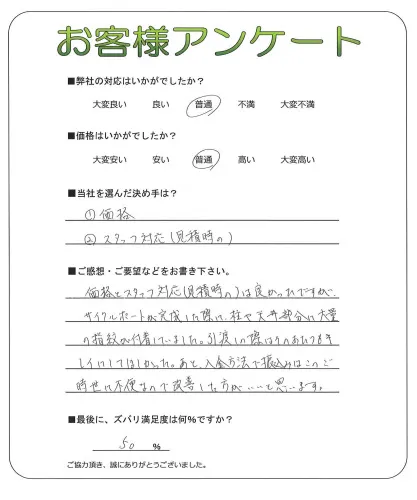 お客様アンケート
■弊社の対応はいかがでしたか？
大変良い 良い 普通 不満 大変不満
■価格はいかがでしたか？
大変安い 安い 普通 高い 大変高い
■当社を選んだ決め手は？
① 価格
② スタッフ対応(見積時の)
■ご感想・ご要望などをお書き下さい。
価格とスタッフ対応(見積時の)は良かったですが、
サイクルポートが完成した際に、柱や天井部分に大量
の指紋が付着していました。引渡しの際はそのあたりもキ
レイにしてほしかった。あと、入金方法で振込みはこのご
時世に不便なので改善した方がいいと思います。
■最後に、ズバリ満足度は何%ですか？
50 %
ご協力頂き、誠にありがとうございました。